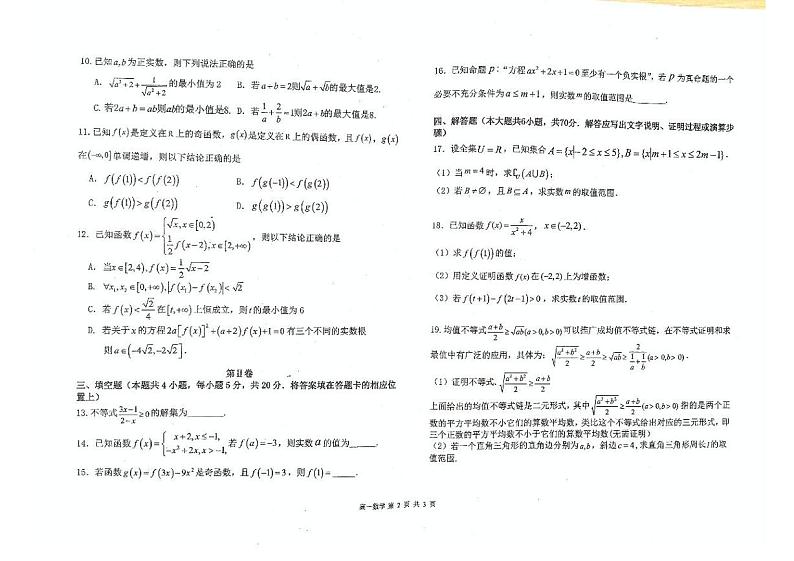 10. 已知a,b为正实数，则下列说法正确的是
A. √(a²+2) + 1/√(a²+2) 的最小值为2  B. 若a+b=2则√a+√b的最大值是2.
C. 若2a+b=ab则ab的最小值是8.  D. 若1/a+2/b=1则2a+b的最大值是8.
11. 已知f(x)是定义在R上的奇函数，g(x)是定义在R上的偶函数，且f(x)，g(x)
在(-∞,0]单调递增，则以下结论正确的是
A. f(f(1))<f(f(2))  B. f(g(-1))<f(g(2))
C. g(f(1))>g(f(2))  D. g(g(1))>g(g(2))
12. 已知函数f(x)={√x, x∈[0,2); 1/2 f(x-2), x∈[2,+∞)，则以下结论正确的是
A. 当x∈[2,4), f(x)=1/2 √(x-2)
B. ∀x₁,x₂∈[0,+∞), |f(x₁)-f(x₂)|<√2
C. 若f(x)<√2/4在[t,+∞)上恒成立，则t的最小值为6
D. 若关于x的方程2a[f(x)]²+(a+2)f(x)+1=0有三个不同的实数根
则a∈(-4√2,-2√2].
第Ⅱ卷
三、填空题（本题共4小题，每小题5分，共20分．将答案填在答题卡的相应位
置上）
13. 不等式(3x-1)/(2-x)≥0的解集为______.
14. 已知函数f(x)={x+2, x≤-1, -x²+2x, x>-1, 若f(a)=-3，则实数a的值为____.
15. 若函数g(x)=f(3x)-9x²是奇函数，且f(-1)=3，则f(1)=____.
16. 已知命题p：“方程ax²+2x+1=0至少有一个负实根”，若p为真命题的一个
必要不充分条件为a≤m+1，则实数m的取值范围是______.
四、解答题（本大题共6小题，共70分．解答应写出文字说明、证明过程或演算步
骤）
17. 设全集U=R，已知集合A={x|-2≤x≤5}, B={x|m+1≤x≤2m-1}.
（1）当m=4时，求∁U(A∪B)；
（2）若B≠∅，且B⊆A，求实数m的取值范围.
18. 已知函数f(x)=x/(x²+4)，x∈(-2,2).
（1）求f(f(1))的值；
（2）用定义证明函数f(x)在(-2,2)上为增函数；
（3）若f(t+1)-f(2t-1)>0，求实数t的取值范围.
19. 均值不等式(a+b)/2≥√ab(a>0,b>0)可以推广成均值不等式链，在不等式证明和求
最值中有广泛的应用，具体为：√((a²+b²)/2)≥(a+b)/2≥√ab≥2/(1/a+1/b)(a>0,b>0).
（1）证明不等式.√((a²+b²)/2)≥(a+b)/2
上面给出的均值不等式链是二元形式，其中√((a²+b²)/2)≥(a+b)/2(a>0,b>0)指的是两个正
数的平方平均数不小它们的算数平均数，类比这个不等式给出对应的三元形式，即
三个正数的平方平均数不小于它们的算数平均数(无需证明)
（2）若一个直角三角形的直角边分别为a,b，斜边c=4，求直角三角形周长l的取
值范围.
高一数学 第 2 页 共 3 页